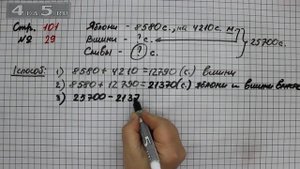 4 ДА 5.RU
Стр. 101
№ 29
Яблони – 8580 с., на 4210 с. м.
Вишни – ? с.
Сливы – ? с.
25700 с.
I способ: 1) 8580 + 4210 = 12790 (с.) вишни
2) 8580 + 12790 = 21370 (с.) яблони и вишни вместе
3) 25700 – 2137